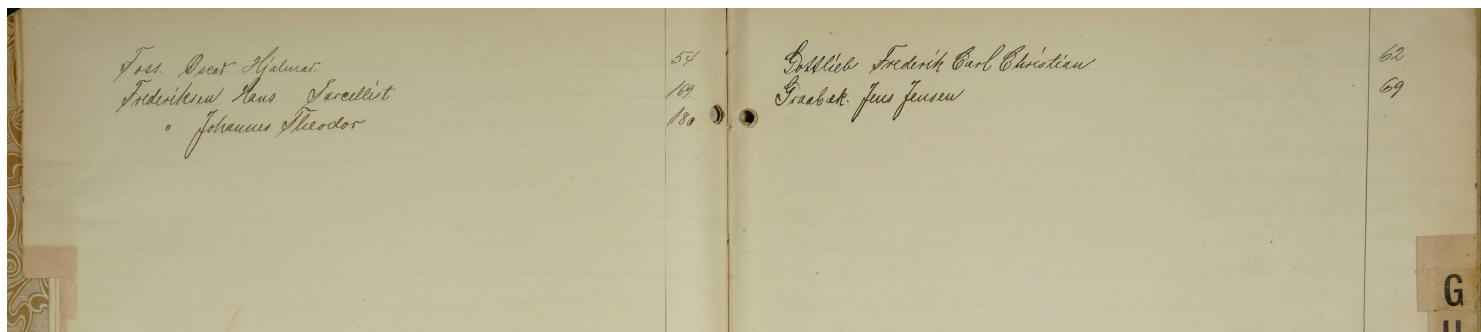 Foss. Oscar Hjalmar. 54
Frederiksen Hans Parcellist 169
" Johannes Theodor 180
Gottlieb Frederik Carl Christian 62
Graabæk. Jens Jensen 69
G
H